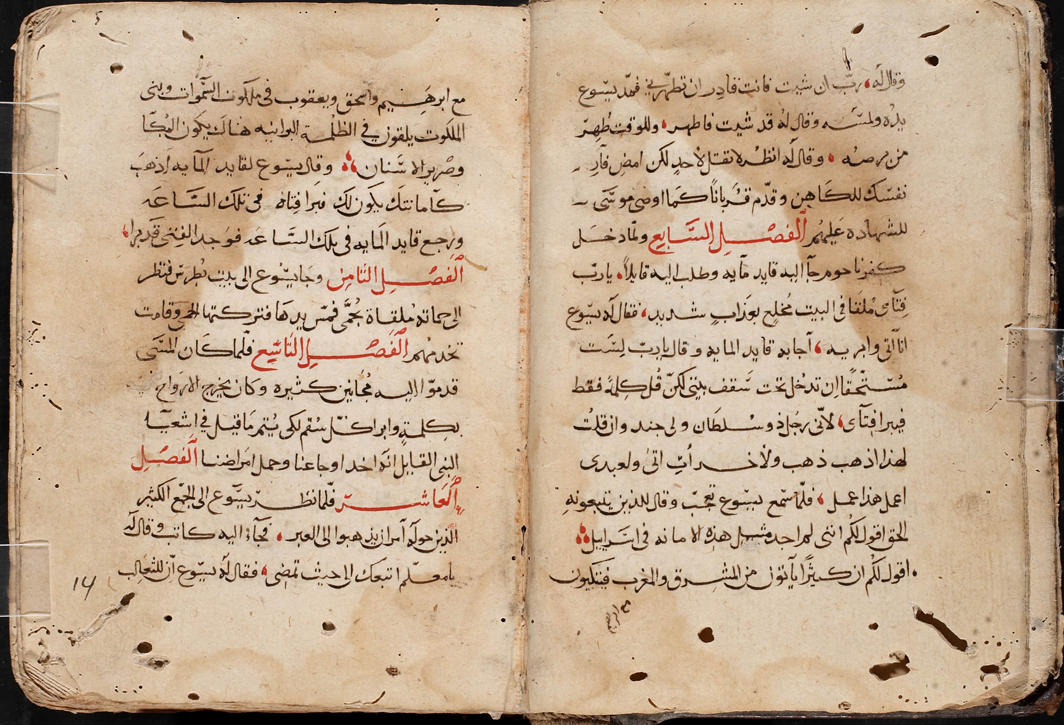 وقال له، ربّ ان شيت فانت قادر ان تطهّرني فمدّ يسوع
يده ولمسه وقال له قد شيت فاطهر، وللوقت طهر
من برصه، وقال له انظر لا تقل لاحد لكن امض فأرِ
نفسك للكاهن وقدّم قرباناً كما اوصى موسى
للشهاده عليهم الفصل السابع ولما دخل
كفرناحوم جآ اليه قايد مآيه وطلب اليه قايلاً، يارب
فتاي ملقا في البيت مخلع بعذاب شديد، فقال له يسوع
انا آتي وابريه، أجابه قايد المايه وقال يارب لست
مستحقا ان تدخل تحت سقف بيتي لكن قُل كلمة فقط
فيبرا فتاي، لأنّي رجل ذو سلطان ولي جند وان قلت
لهذا اذهب ذهب ولأخر أت اتى ولعبدي
اعمل هذا عمل، فلمّا سمع يسوع تعجب وقال للذين يتبعونه
الحق اقول لكم انني لم اجد مثل هذه الامانه في اسرايل
اقول لكم ان كثيرًا يأتون من المشرق والمغرب فيتكيون
مع ابرهيم
مع ابرهيم واسحق ويعقوب في ملكوت السموات وبنى
الملكوت يلقون في الظلمة البرانيه هناك يكون البكا
وصرير الاسنان وقال يسوع لقايد المآيه اذهب
كامانتك يكون لك فبرا فتاه في تلك الساعه
ورجع قايد المايه في تلك الساعه فوجد الفتى قد برا،
الفصل الثامن وجا يسوع الى بيت بطرس فنظر
الى حماته ملقاة بحُمّى فمس يدها فتركتها الحمى وقامت
تخدمهم الفصل التاسع فلما كان المسَى
قدموا اليه مجانين كثيره وكان يخرج الارواح
بكلمةٍ وابرا كل سقم لكي يتم ما قيل في اشعيا
النبي القايل انه اخد اوجاعنا وحمل امراضنا الفصل
العاشر فلمّا نظر يسوع الى الجمع الكثير
الذين حوله أمر ان يذهبوا الى العبر، فجآء اليه كاتب وقال له
يامعلم اتبعك الى حيث تمضي، فقال له يسوع ان للثعالب
14